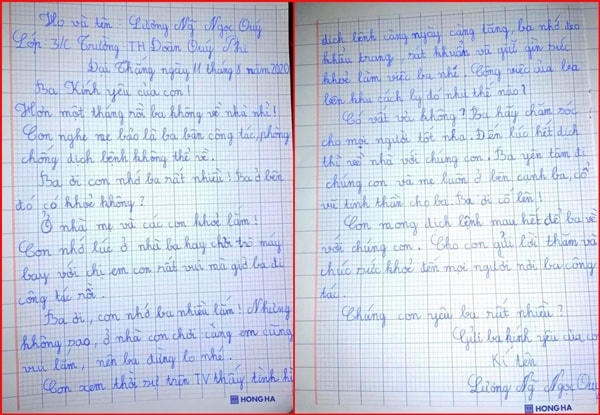 Họ và tên: Lương Mỹ Ngọc Quý
Lớp 3/C Trường TH Đoàn Quý Phi
Đại Thắng ngày 11 tháng 8 năm 2020
Ba Kính yêu của con!
Hơn một tháng rồi ba không về nhà nhỉ!
Con nghe mẹ bảo là ba bận công tác, phòng
chống dịch bệnh không thể về.
Ba ơi con nhớ ba rất nhiều! Ba ở bên
đó có khoẻ không?
Ở nhà mẹ và các con khoẻ lắm!
Con nhớ lúc ở nhà ba hay chơi trò máy
bay với chị em con rất vui mà giờ ba đi
công tác rồi.
Ba ơi, con nhớ ba nhiều lắm! Nhưng
không sao, ở nhà con chơi cùng em cũng
vui lắm, nên ba đừng lo nhé.
Con xem thời sự trên TV thấy tình hì
HONG HA
dịch bệnh càng ngày càng tăng, ba nhớ đeo
khẩu trang, sát khuẩn và giữ gìn sức
khoẻ làm việc ba nhé. Công việc của ba
bên khu cách ly đó như thế nào?
Có vất vả không? Ba hãy chăm sóc
cho mọi người tốt nha. Đến lúc hết dịch
thì về nhà với chúng con. Ba yên tâm đi
chúng con và mẹ luôn ở bên cạnh ba, cổ
vũ tinh thần cho ba. Ba ơi cố lên!
Con mong dịch bệnh mau hết để ba về
với chúng con. Cho con gửi lời thăm và
chúc sức khoẻ đến mọi người nơi ba công
tác.
Chúng con yêu ba rất nhiều?
Gửi ba kính yêu của co
Kí tên
Lương Mỹ Ngọc Quý
HONG HA